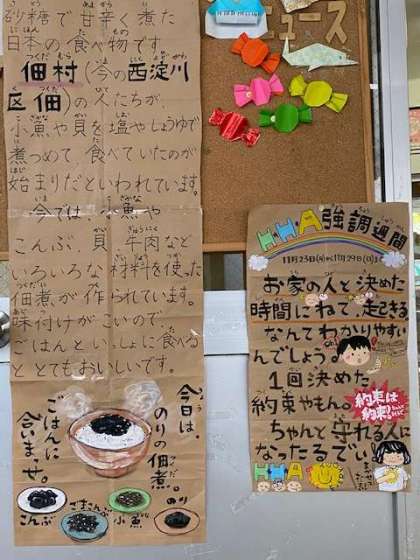 砂糖で甘辛く煮た
日本の食べ物です。
佃村(今の西淀川
区佃)の人たちが、
小魚や貝を塩やしょうゆで
煮つめて、食べていたのが
始まりだといわれています。
今では、小魚や
こんぶ、貝、牛肉など
いろいろな材料を使った
佃煮が作られています。
味付けがこいので、
ごはんといっしょに食べる
ととてもおいしいです。
今日は
のりの佃煮。
ごはんに
合いまっせ。
こんぶ
ごまこんぶ
小魚
のり
ニュース
HHA強調週間
11月23日(月)から11月29日(日)まで
お家の人と決めた
時間にねて、起きる
なんてわかりやすい
んでしょう。
1回決めた
約束やもん。
約束は
約束!
ちゃんと守れる人に
なったるでい。
HHA